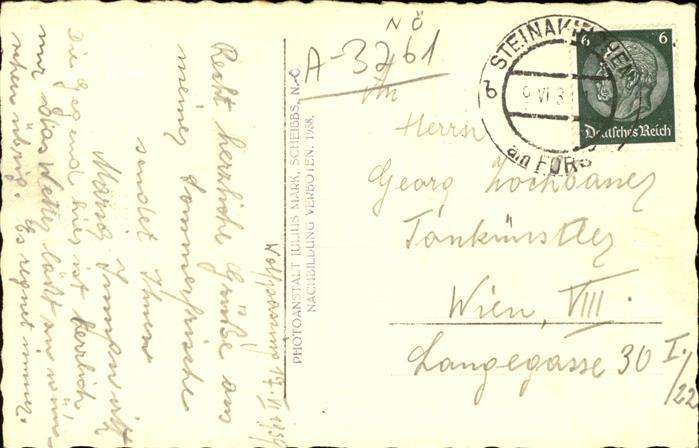 Recht herzliche Grüße aus
meiner Sommerfrische
sendet Ihnen
Maria
Die Gegend hier ist herrlich
nur das Wetter läßt zu wün-
schen übrig. Es regnet immer.
Wolfpassing 19. VI 1939
PHOTOANSTALT JULIUS MARK, SCHEIBBS, N.-Ö.
NACHBILDUNG VERBOTEN. 1938.
NÖ
A-3261
STEINAKIRCHEN
am FORST
b
VI 3
6 6
Deutsches Reich
An
Herrn
Georg Zochbauer
Tonkünstler
Wien, VIII.
Langegasse 30 I./22